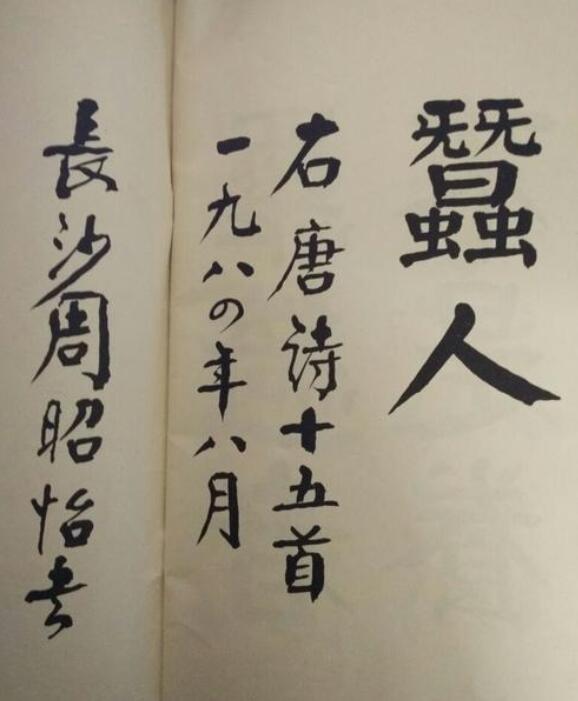 蠶人
右唐诗十五首
一九八〇年八月
長沙周昭怡书